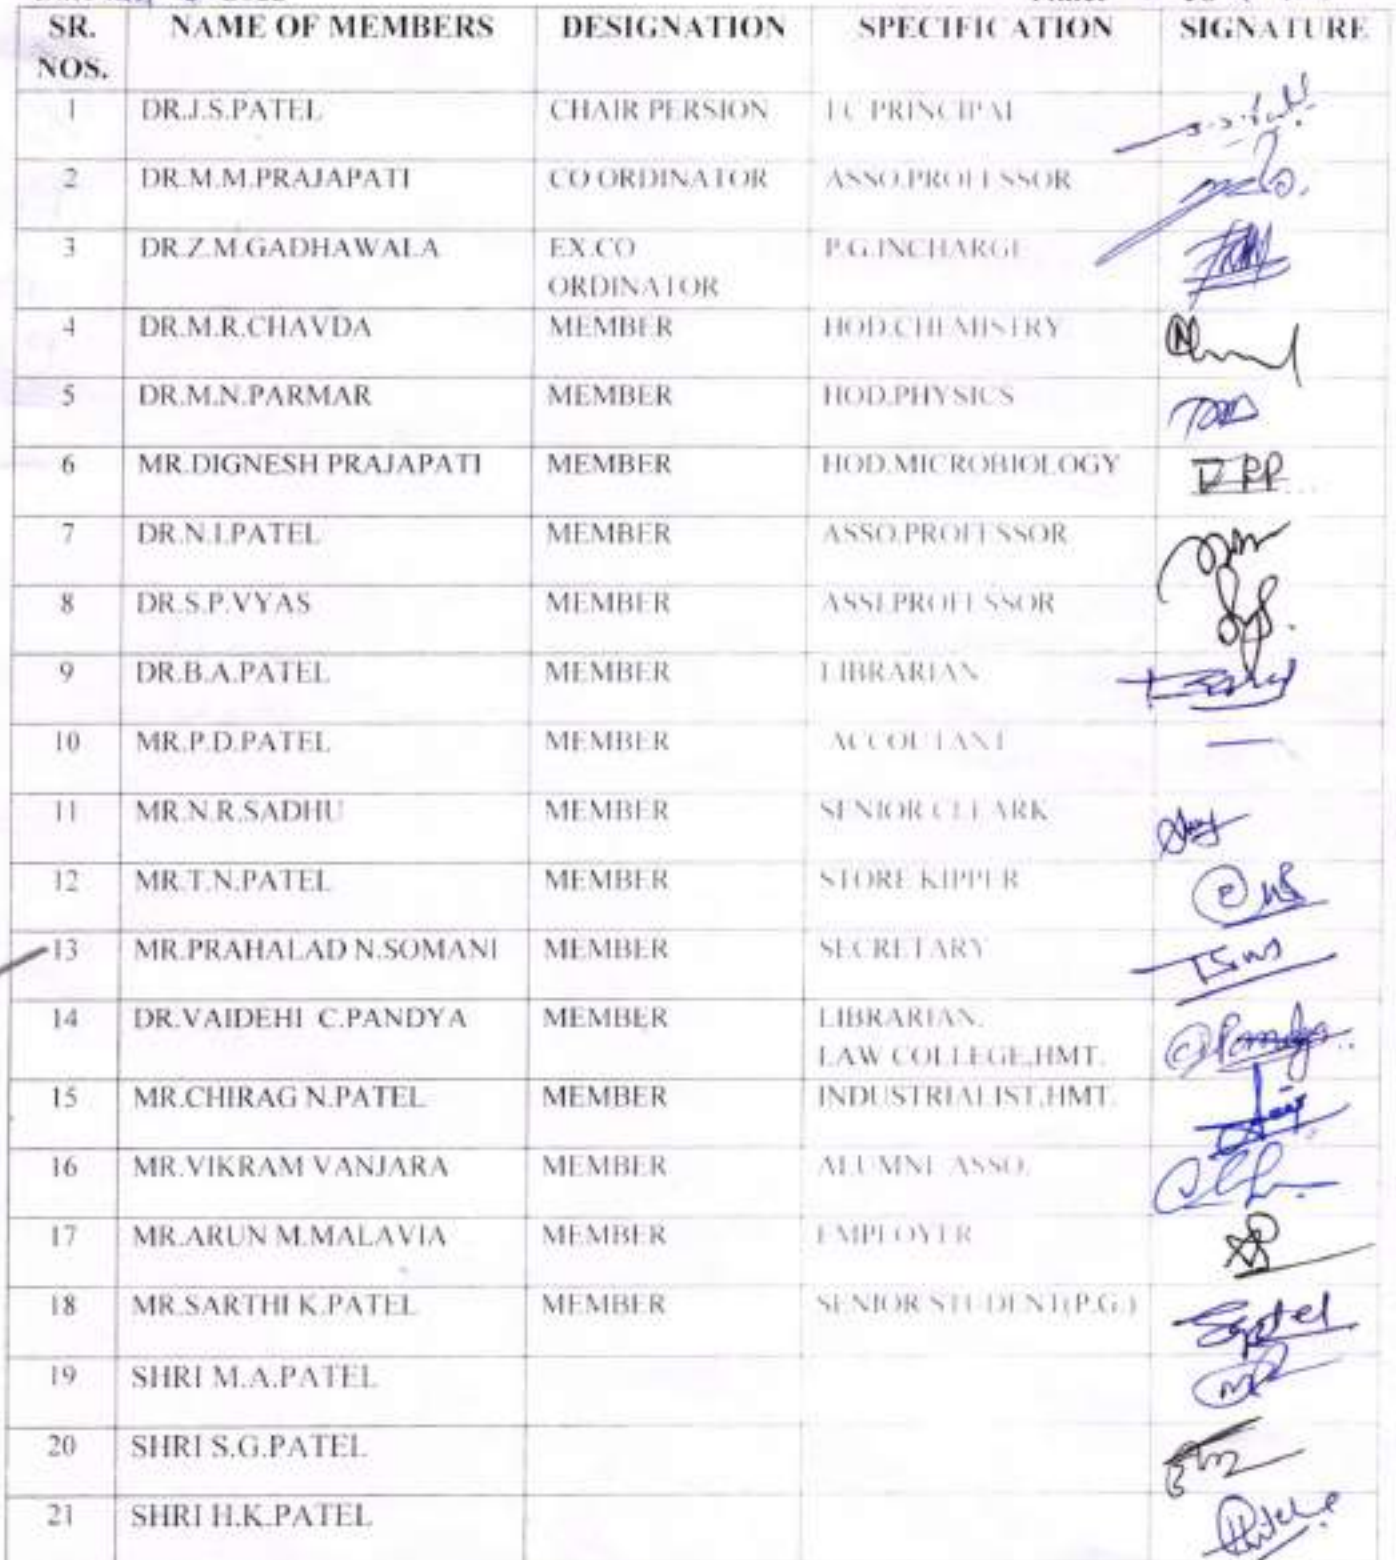 SR. NAME OF MEMBERS DESIGNATION SPECIFICATION SIGNATURE
NOS.
1 DR.J.S.PATEL CHAIR PERSION I C PRINCIPAL
2 DR.M.M.PRAJAPATI CO ORDINATOR ASSO.PROFESSOR
3 DR.Z.M.GADHAWALA EX.CO P.G.INCHARGE
ORDINATOR
4 DR.M.R.CHAVDA MEMBER HOD.CHEMISTRY
5 DR.M.N.PARMAR MEMBER HOD.PHYSICS
6 MR.DIGNESH PRAJAPATI MEMBER HOD.MICROBIOLOGY DPP
7 DR.N.I.PATEL MEMBER ASSO.PROFESSOR
8 DR.S.P.VYAS MEMBER ASSI.PROFESSOR
9 DR.B.A.PATEL MEMBER LIBRARIAN
10 MR.P.D.PATEL MEMBER ACCOUTANT —
11 MR.N.R.SADHU MEMBER SENIOR CLEARK
12 MR.T.N.PATEL MEMBER STORE KIPPER
13 MR.PRAHALAD N.SOMANI MEMBER SECRETARY
14 DR.VAIDEHI C.PANDYA MEMBER LIBRARIAN.
LAW COLLEGE,HMT.
15 MR.CHIRAG N.PATEL MEMBER INDUSTRIALIST,HMT.
16 MR.VIKRAM VANJARA MEMBER ALUMNI ASSO.
17 MR.ARUN M.MALAVIA MEMBER EMPLOYER
18 MR.SARTHI K.PATEL MEMBER SENIOR STUDENT(P.G.)
19 SHRI M.A.PATEL
20 SHRI S.G.PATEL
21 SHRI H.K.PATEL